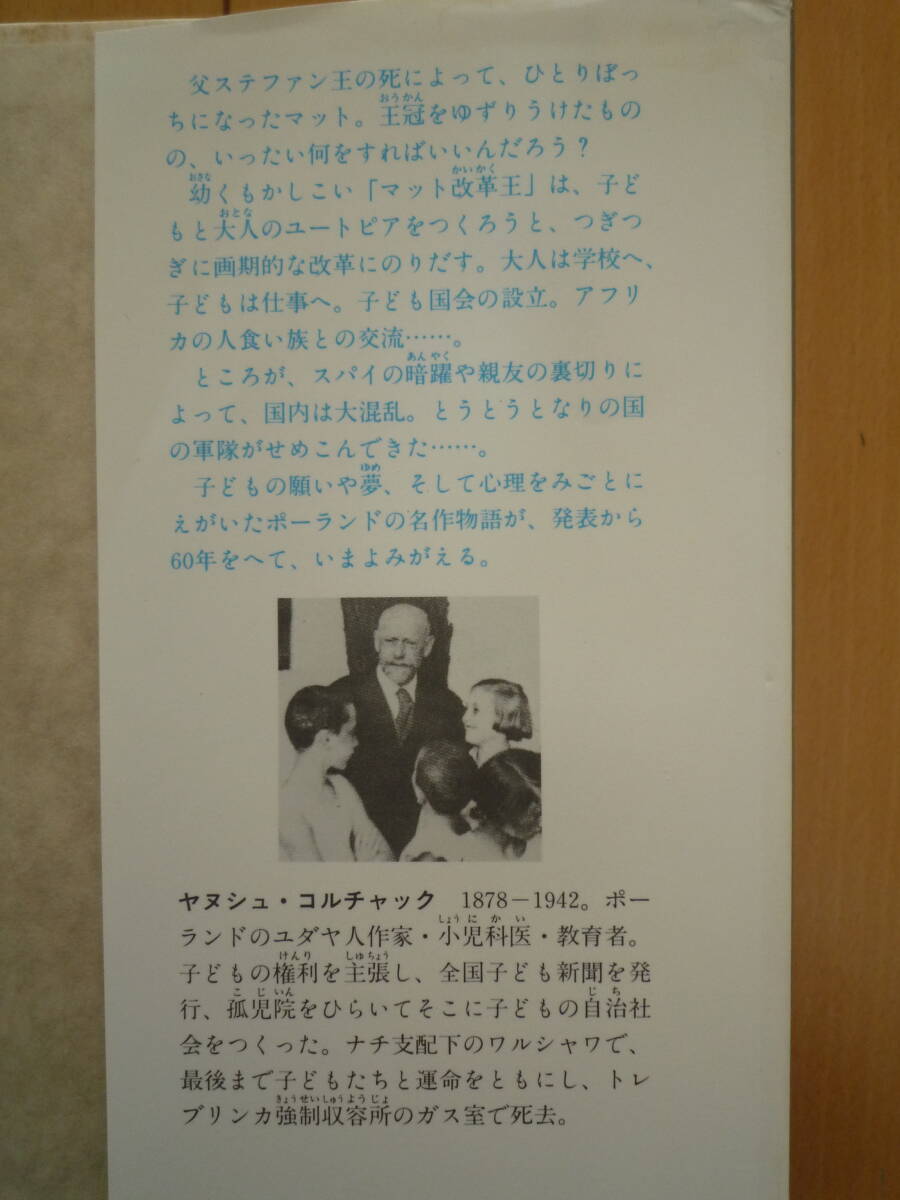 父ステファン王の死によって、ひとりぼっ
ちになったマット。王冠をゆずりうけたもの
の、いったい何をすればいいんだろう？
幼くもかしこい「マット改革王」は、子ど
もと大人のユートピアをつくろうと、つぎつ
ぎに画期的な改革にのりだす。大人は学校へ、
子どもは仕事へ。子ども国会の設立。アフリ
カの人食い族との交流……。
ところが、スパイの暗躍や親友の裏切りに
よって、国内は大混乱。とうとうとなりの国
の軍隊がせめこんできた……。
子どもの願いや夢、そして心理をみごとに
えがいたポーランドの名作物語が、発表から
60年をへて、いまよみがえる。
ヤヌシュ・コルチャック　1878－1942。ポー
ランドのユダヤ人作家・小児科医・教育者。
子どもの権利を主張し、全国子ども新聞を発
行、孤児院をひらいてそこに子どもの自治社
会をつくった。ナチ支配下のワルシャワで、
最後まで子どもたちと運命をともにし、トレ
ブリンカ強制収容所のガス室で死去。